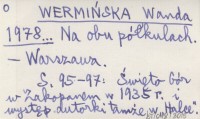 o WERMIŃSKA Wanda
1978... Na obu półkulach.
– Warszawa.
S. 95-97: Święto gór
w Zakopanem w 1935 r. i
występ autorki tamże w „Halce".